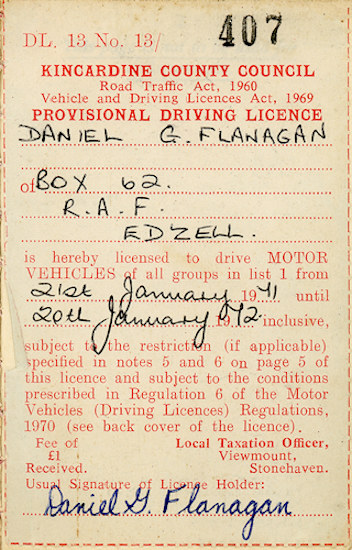 DL. 13 No. 13/ 407
KINCARDINE COUNTY COUNCIL
Road Traffic Act, 1960
Vehicle and Driving Licences Act, 1969
PROVISIONAL DRIVING LICENCE
DANIEL G. FLANAGAN
of BOX 62.
R.A.F.
EDZELL.
is hereby licensed to drive MOTOR
VEHICLES of all groups in list 1 from
21st January 1971 until
20th January 1972. inclusive,
subject to the restriction (if applicable)
specified in notes 5 and 6 on page 5 of
this licence and subject to the conditions
prescribed in Regulation 6 of the Motor
Vehicles (Driving Licences) Regulations,
1970 (see back cover of the licence).
Fee of Local Taxation Officer,
£1 Viewmount,
Received. Stonehaven.
Usual Signature of License Holder:
Daniel G. Flanagan